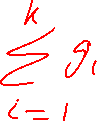 \sum_{i=1}^{k} g_i